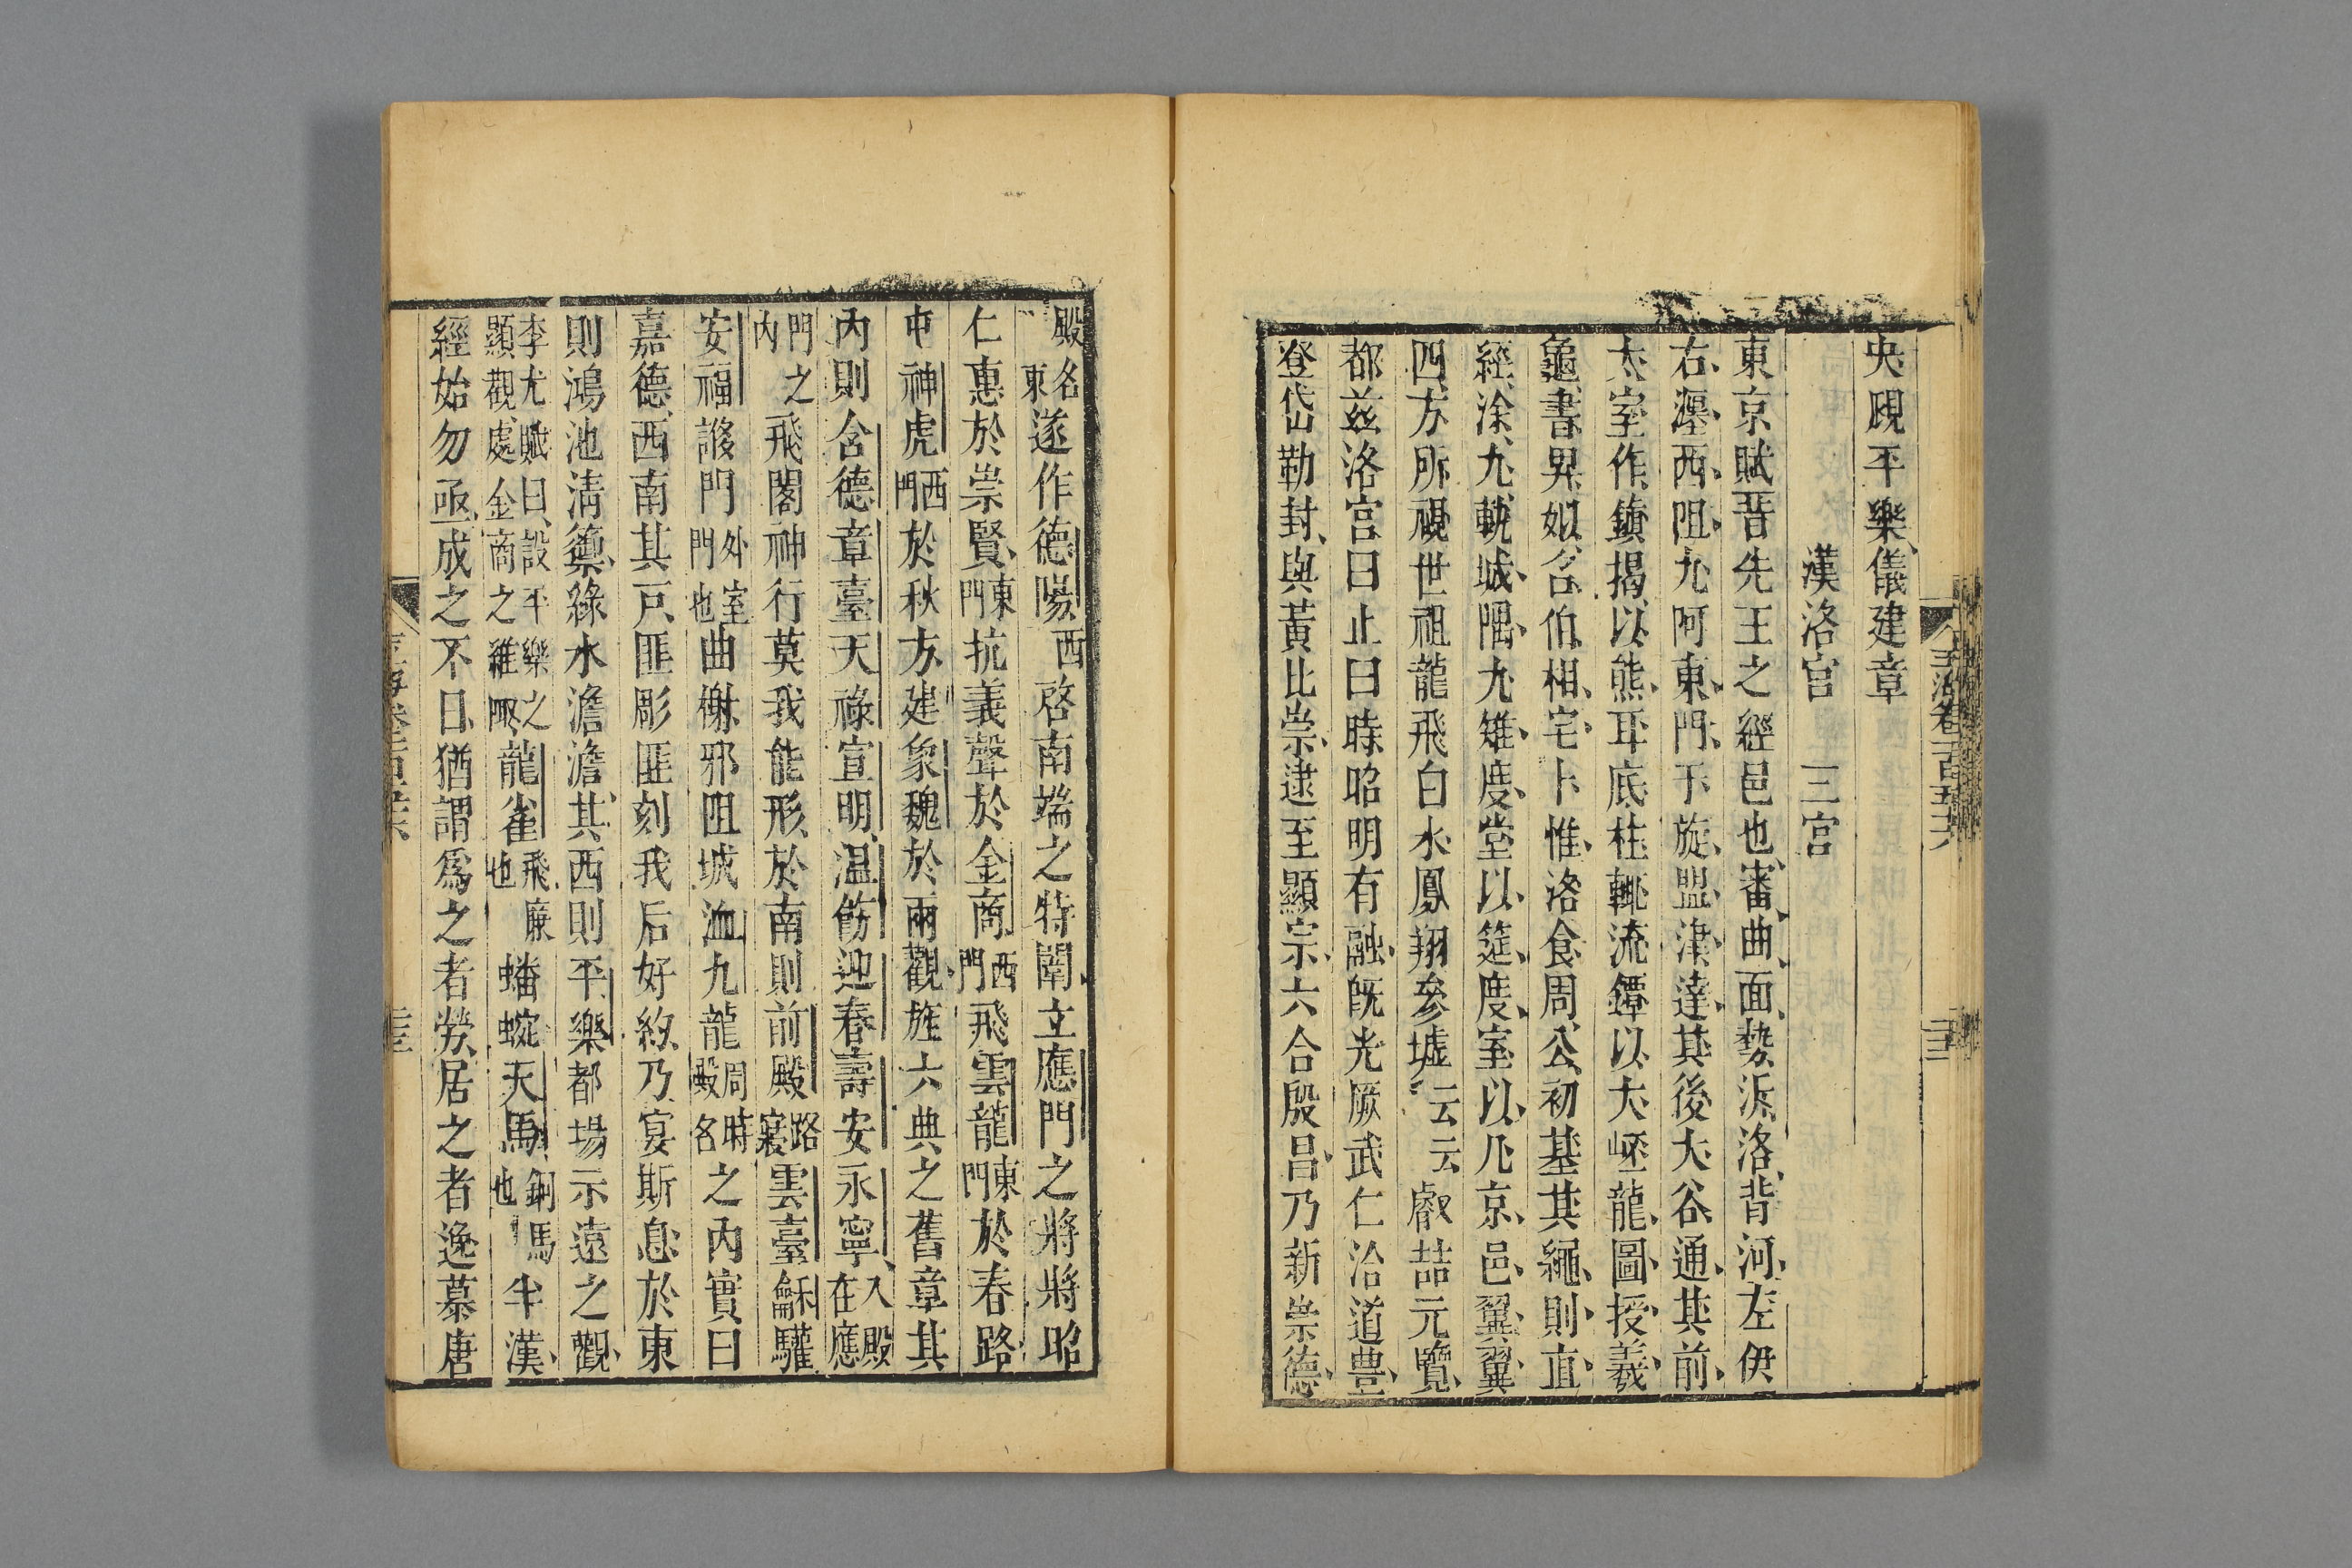 央覛平樂儀建章
漢洛宫 三宫
東京賦昔先王之經邑也審曲面勢泝洛背河左伊
右瀍西阻九阿東門于旋盟津達其後大谷通其前
太室作鎮揭以熊耳底柱輟流鐔以大岯龍圖授羲
龜書畀姒召伯相宅卜惟洛食周公初基其繩則直
經涂九軌城隅九雉度堂以筵度室以几京邑翼翼
四方所視世祖龍飛白水鳳翔參墟云云叡喆元覽
都兹洛宫曰止曰時昭明有融既光厥武仁洽道豊
登岱勒封與黃比崇逮至顯宗六合殷昌乃新崇德
殿名東遂作德陽西啓南端之特闈立應門之將將昭
仁惠於崇賢東門抗義聲於金商西門飛雲龍東門於春路
屯神虎西門於秋方建象魏於兩觀旌六典之舊章其
内則含德章臺天祿宣明温飭迎春壽安永寧入殿在應
門之内飛閣神行莫我能形於南則前殿路寢雲臺龢驩
安福謻門外室門也曲榭邪阻城洫九龍周時殿名之内實曰
嘉德西南其戸匪彫匪刻我后好約乃宴斯息於東
則鴻池清籞綠水澹澹其西則平樂都場示遠之觀
李尤賦曰設平樂之顯觀處金商之維陬龍雀飛廉也蟠蜿天馬銅馬也半漢
經始勿亟成之不日猶謂爲之者勞居之者逸慕唐
玉海卷一百五十六